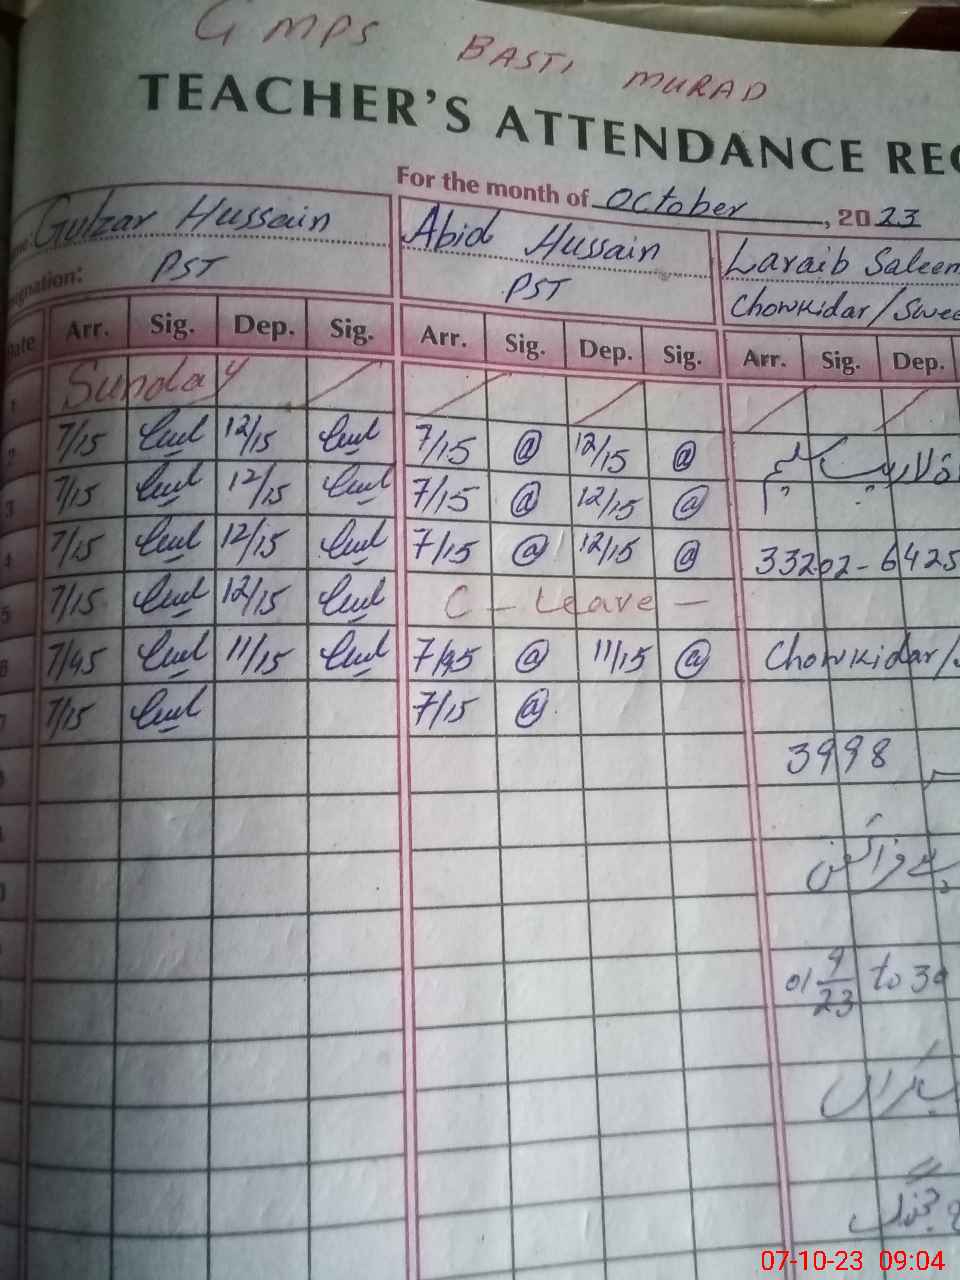 GMPS BASTI MURAD
TEACHER'S ATTENDANCE REG
For the month of October, 2023
Gulzar Hussain Abid Hussain Laraib Saleem
signation: PST PST Chowkidar/Swee
Date Arr. Sig. Dep. Sig. Arr. Sig. Dep. Sig. Arr. Sig. Dep.
1 Sunday
2 7/15 12/15 7/15 @ 12/15 @
3 7/15 12/15 7/15 @ 12/15 @
4 7/15 12/15 7/15 @ 12/15 @ 33202-6425
5 7/15 12/15 C - Leave -
6 7/45 11/15 7/45 @ 11/15 @ Chowkidar/S
7 7/15 7/15 @
3998
01 9/23 to 30
07-10-23 09:04